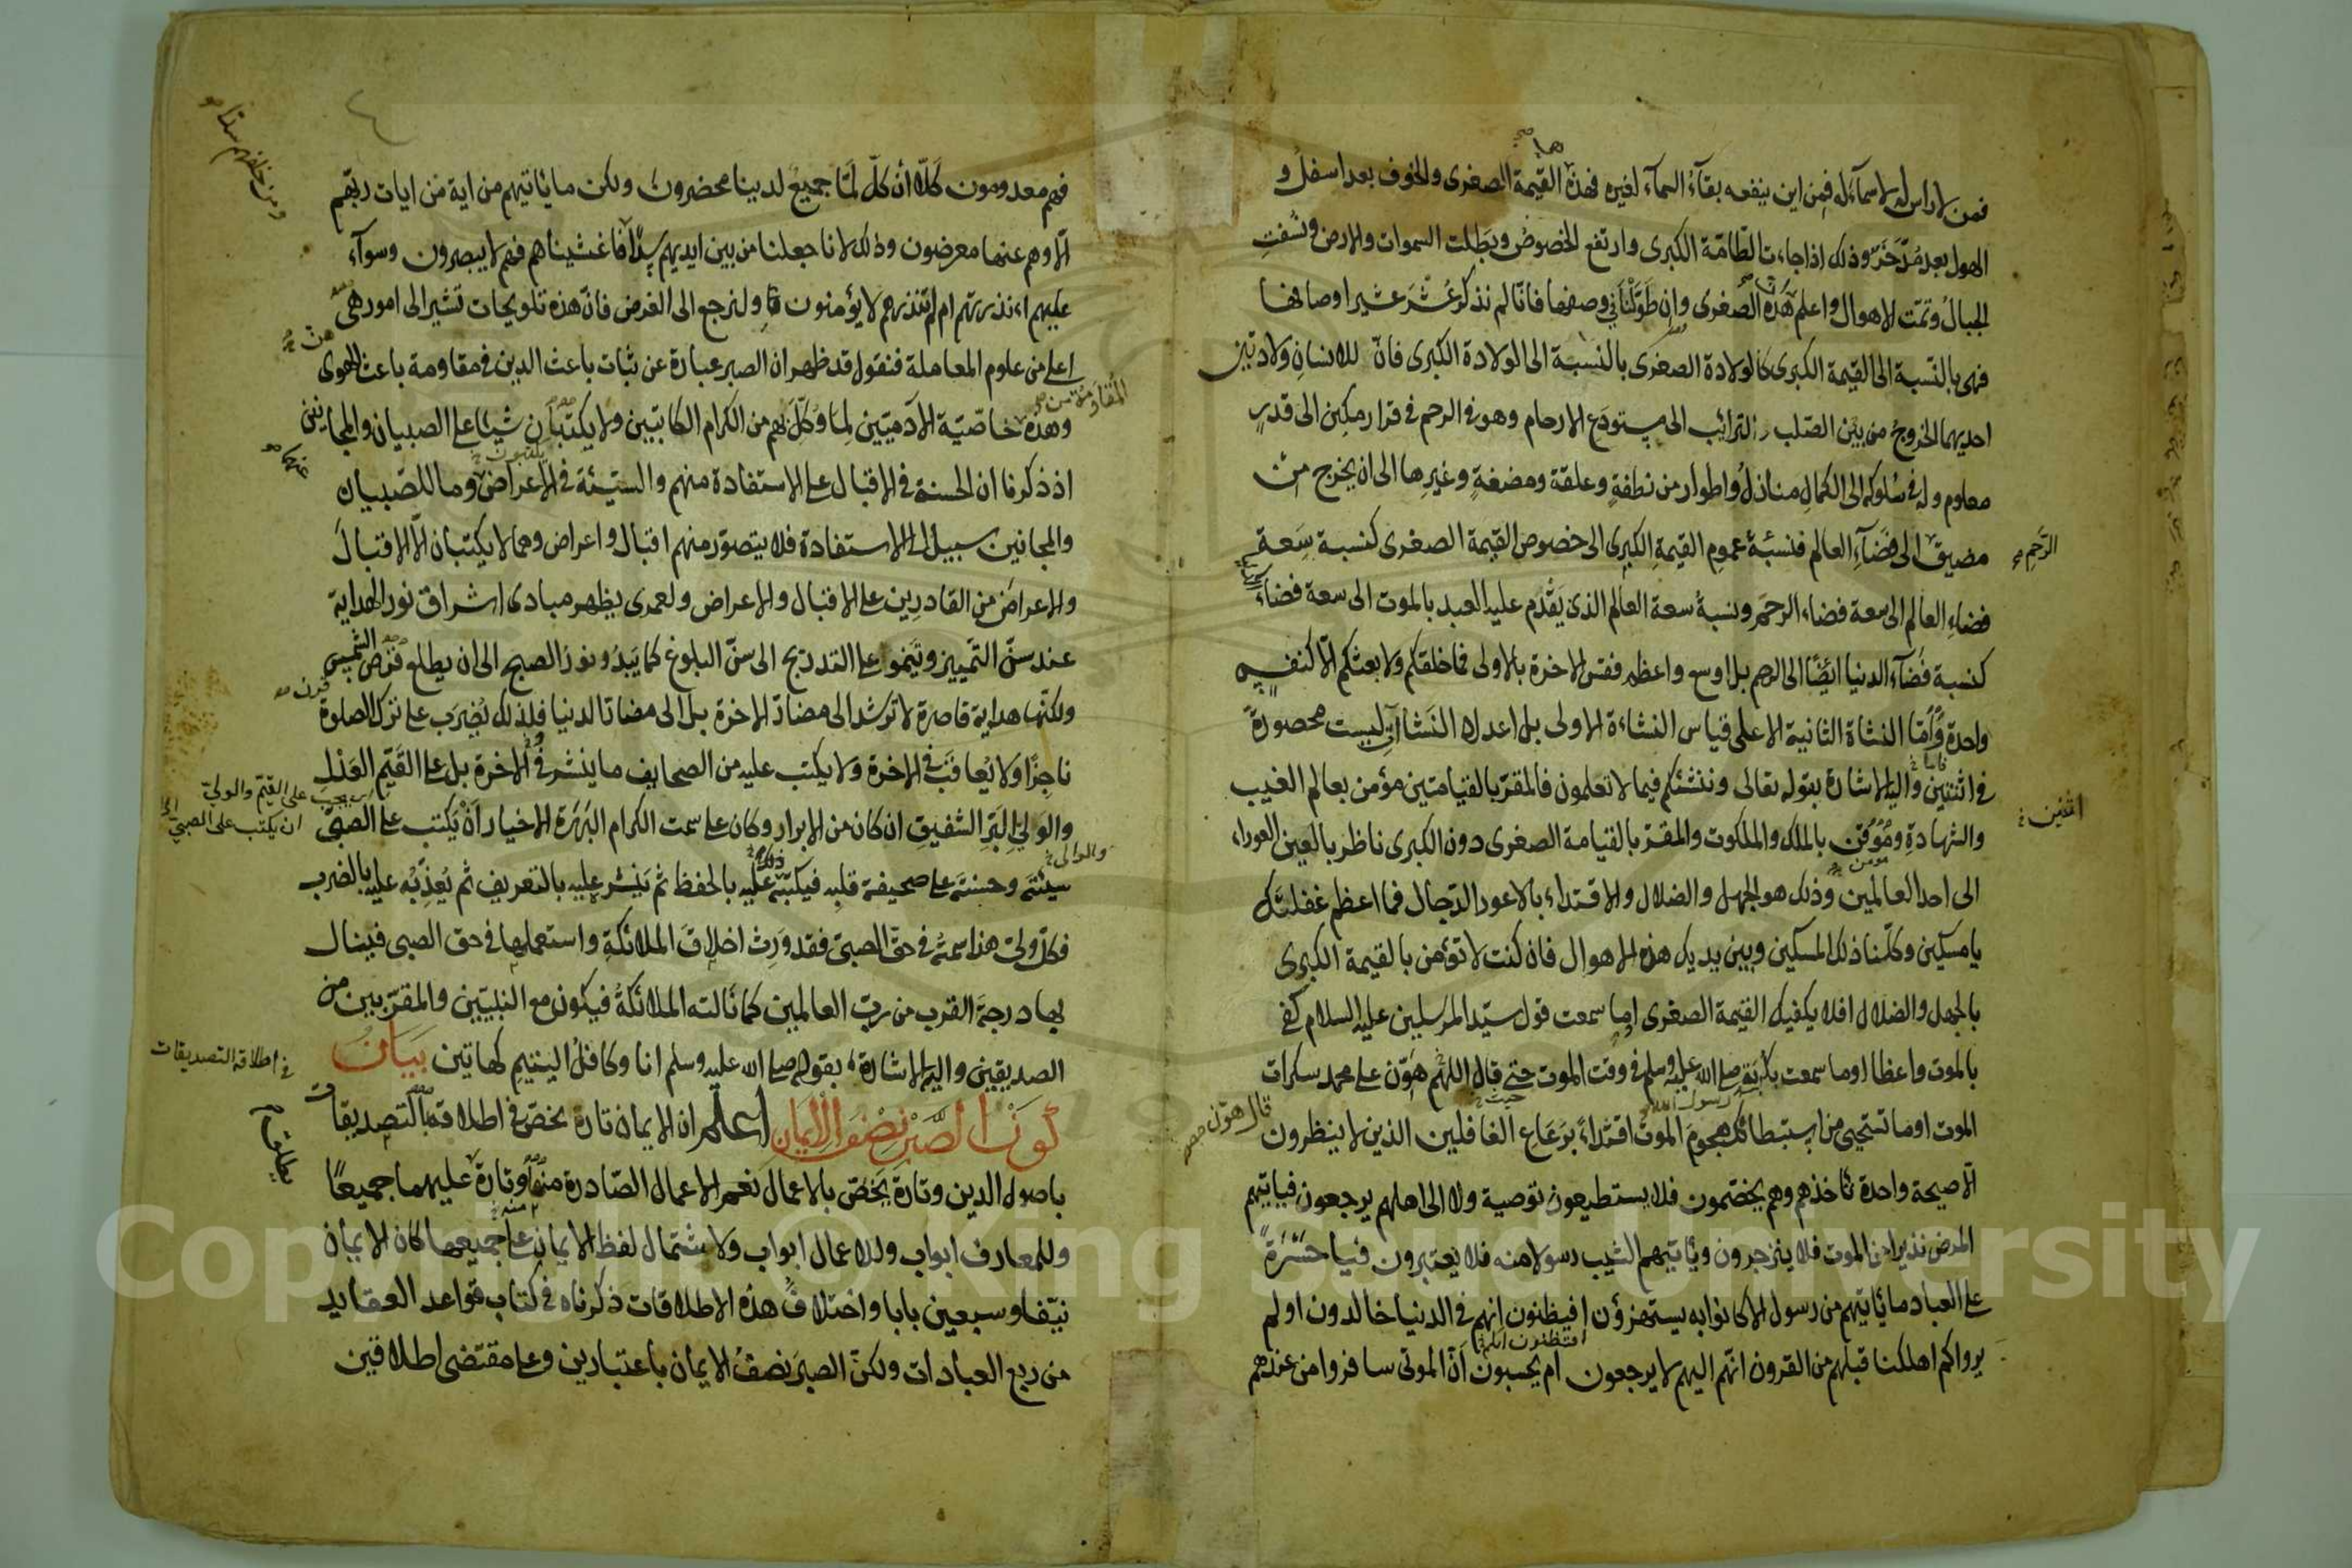 فمن لا راس له لا سماء له فمن اين ينفعه بقاء السماء لغيره فهذه القيمة الصغرى والخوف بعد اسفل و
الهول بعد مدخر وذلك اذا جاءت الطامة الكبرى وارتفع الخصوص وبطلت السموات والارض ونسفت
الجبال وتمت الاهوال واعلم هذه الصغرى وان طولنا في وصفها فانا لم نذكر عشر عشير اوصافها
فهى بالنسبة الى القيمة الكبرى كالولادة الصغرى بالنسبة الى الولادة الكبرى فان للانسان ولادتين
احديهما الخروج من بين الصلب والترائب الى مستودع الارحام وهو في الرحم في قرار مكين الى قدر
معلوم وله في سلوكه الى الكمال منازل واطوار من نطفة وعلقة ومضغة وغيرها الى ان يخرج من
مضيق الى فضاء العالم فنسبة عموم القيمة الكبرى الى خصوص القيمة الصغرى كنسبة سعة
الرحم
فضاء العالم الى سعة فضاء الرحم ونسبة سعة العالم الذى يقدم عليه العبد بالموت الى سعة فضاء
كنسبة فضاء الدنيا ايضا الى الرحم بل اوسع واعظم فقس الاخرة بالاولى فما خلقكم ولا بعثكم الا كنفس
واحدة وما النشاة الثانية الا على قياس النشاءة الاولى بل اعداد النشاآت ليست محصورة
في اثنتين واليه الاشارة بقوله تعالى وننشئكم فيما لا تعلمون فالمقر بالقيامتين مؤمن بعالم الغيب
اثنين
والشهادة وموقن بالملك والملكوت والمقر بالقيامة الصغرى دون الكبرى ناظر بالعين العوراء
الى احد العالمين وذلك هو الجهل والضلال والاقتداء بالاعور الدجال فما اعظم غفلتك
يا مسكين وكلنا ذلك المسكين وبين يديك هذه الاهوال فان كنت لا تؤمن بالقيمة الكبرى
بالجهل والضلال افلا يكفيك القيمة الصغرى اوما سمعت قول سيد المرسلين عليه السلام كفى
بالموت واعظا اوما سمعت بكربه صلى الله عليه وسلم في وقت الموت حتى قال اللهم هون على محمد سكرات
قال هون
الموت اوما تستحيى من استبطائك هجوم الموت اقتداء برعاع الغافلين الذين لا ينظرون
الا صيحة واحدة تاخذهم وهم يخصمون فلا يستطيعون توصية ولا الى اهلهم يرجعون فياتيهم
المرض نذيرا من الموت فلا ينزجرون وياتيهم الشيب رسولا منه فلا يعتبرون فيا حسرة
على العباد ما ياتيهم من رسول الا كانوا به يستهزؤن افيظنون انهم في الدنيا خالدون اولم
يرواكم اهلكنا قبلهم من القرون انهم اليهم لا يرجعون ام يحسبون ان الموتى سافروا من عندهم
فهم معدومون كلا ان كل لما جميع لدينا محضرون ولكن ما ياتيهم من اية من ايات ربهم
ومن خلفهم سدا
الا وهم عنها معرضون وذلك لانا جعلنا من بين ايديهم سدا فاغشيناهم فهم لا يبصرون وسواء
عليهم اءنذرتهم ام لم تنذرهم لا يؤمنون ولنرجع الى الغرض فان هذه تلويحات تشير الى امور هى
اعلى من علوم المعاملة فنقول قد ظهر ان الصبر عبارة عن ثبات باعث الدين في مقاومة باعث الهوى
وهذه خاصية الآدميين لما وكل بهم من الكرام الكاتبين ولا يكتبان شيئا على الصبيان والمجانين
المقاومة من
اذ ذكرنا ان الحسنة في الاقبال على الاستفادة منهم والسيئة في الاعراض وما للصبيان
والمجانين سبيل الى الاستفادة فلا يتصور منهم اقبال واعراض وهما لا يكتبان الا الاقبال
والاعراض من القادرين على الاقبال والاعراض ولعمرى يظهر مبادى اشراق نور الهداية
عند سن التمييز وتنمو على التدريج الى سن البلوغ كما يبدو نور الصبح الى ان يطلع قرص الشمس
ولكنها هداية قاصرة لا ترشد الى مضار الاخرة بل الى مضار الدنيا فلذلك يضرب على ترك الصلوة
ناجزا ولا يعاقب في الاخرة ولا يكتب عليه من الصحايف ما ينشر في الاخرة بل على القيم العدل
والولى البر الشفيق ان كان من الابرار وكان على سمت الكرام البررة الاخيار ان يكتب على الصبى
يجب على القيم والولي
ان يكتب على الصبي
سيئته وحسنته على صحيفة قلبه فيكتبه عليه بالحفظ ثم ينشر عليه بالتعريف ثم يعذبه عليه بالضرب
فكل ولى هذا سمته في حق الصبى فقد ورث اخلاق الملائكة واستعملها في حق الصبى فينال
بها درجة القرب من رب العالمين كما نالته الملائكة فيكون مع النبيين والمقربين من
الصديقين واليه الاشارة بقوله صلى الله عليه وسلم انا وكافل اليتيم كهاتين بيان
في اطلاقه التصديقات
كون الصبر نصف الايمان اعلم ان الايمان تارة يختص في اطلاقه بالتصديقات
باصول الدين وتارة يختص بالاعمال نعم الاعمال الصادرة منها وتارة عليهما جميعا
وللمعارف ابواب وللاعمال ابواب ولاشتمال لفظ الايمان على جميعها كان الايمان
نيفا وسبعين بابا واختلاف هذه الاطلاقات ذكرناه في كتاب قواعد العقايد
من ربع العبادات ولكن الصبر نصف الايمان باعتبارين وعلى مقتضى اطلاقين
Copyright © King Saud University